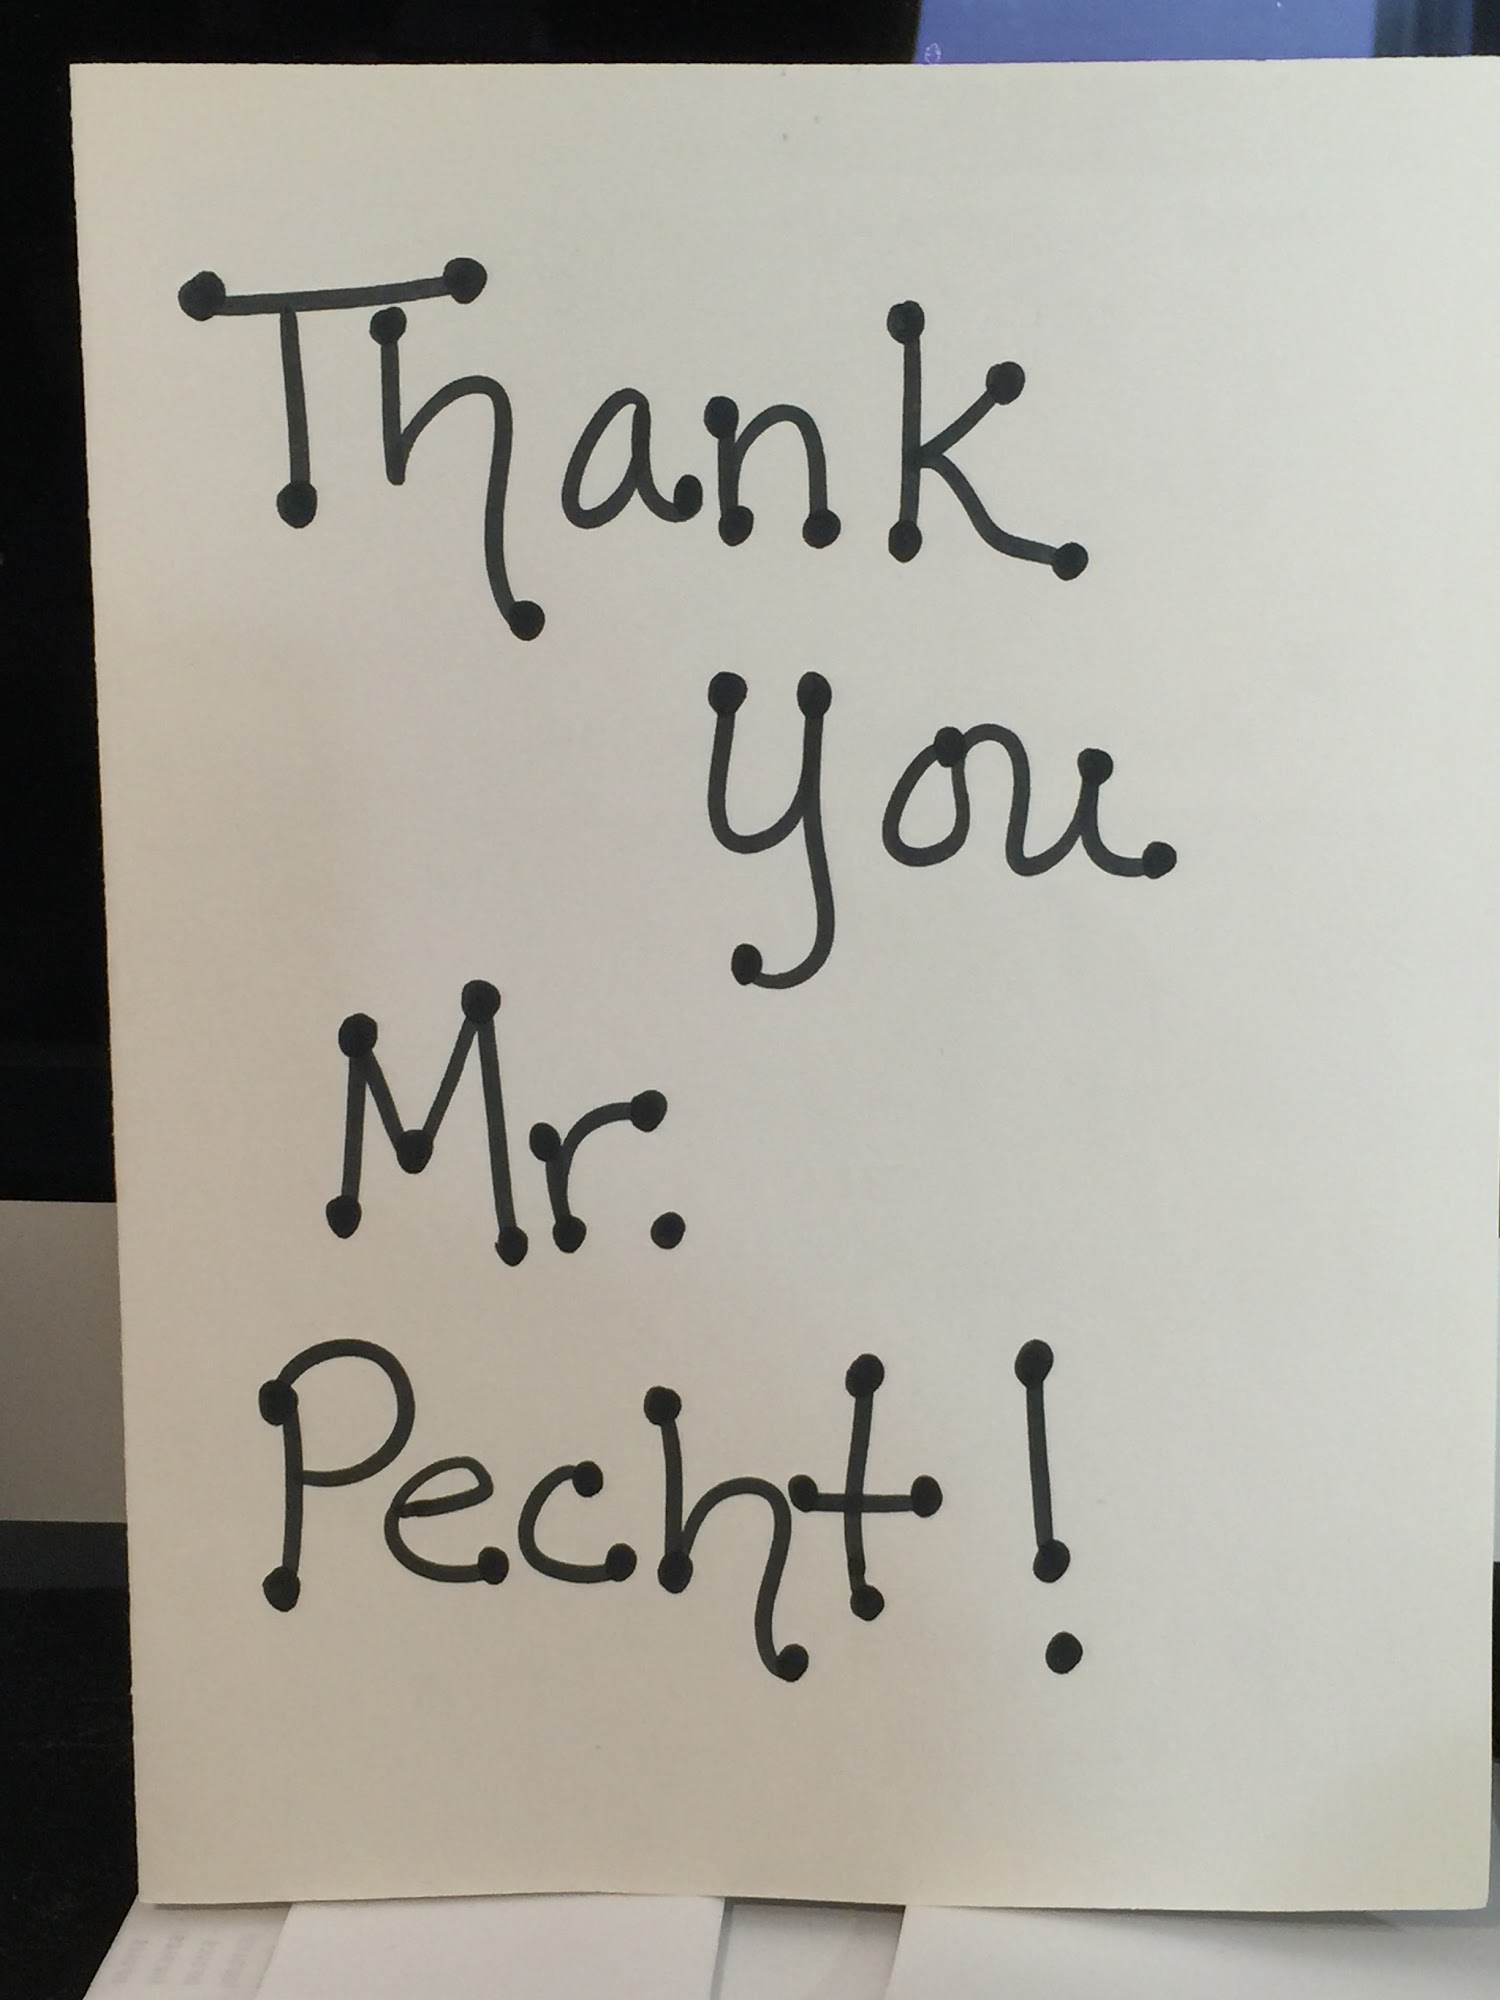 Thank
you
Mr.
Pecht!